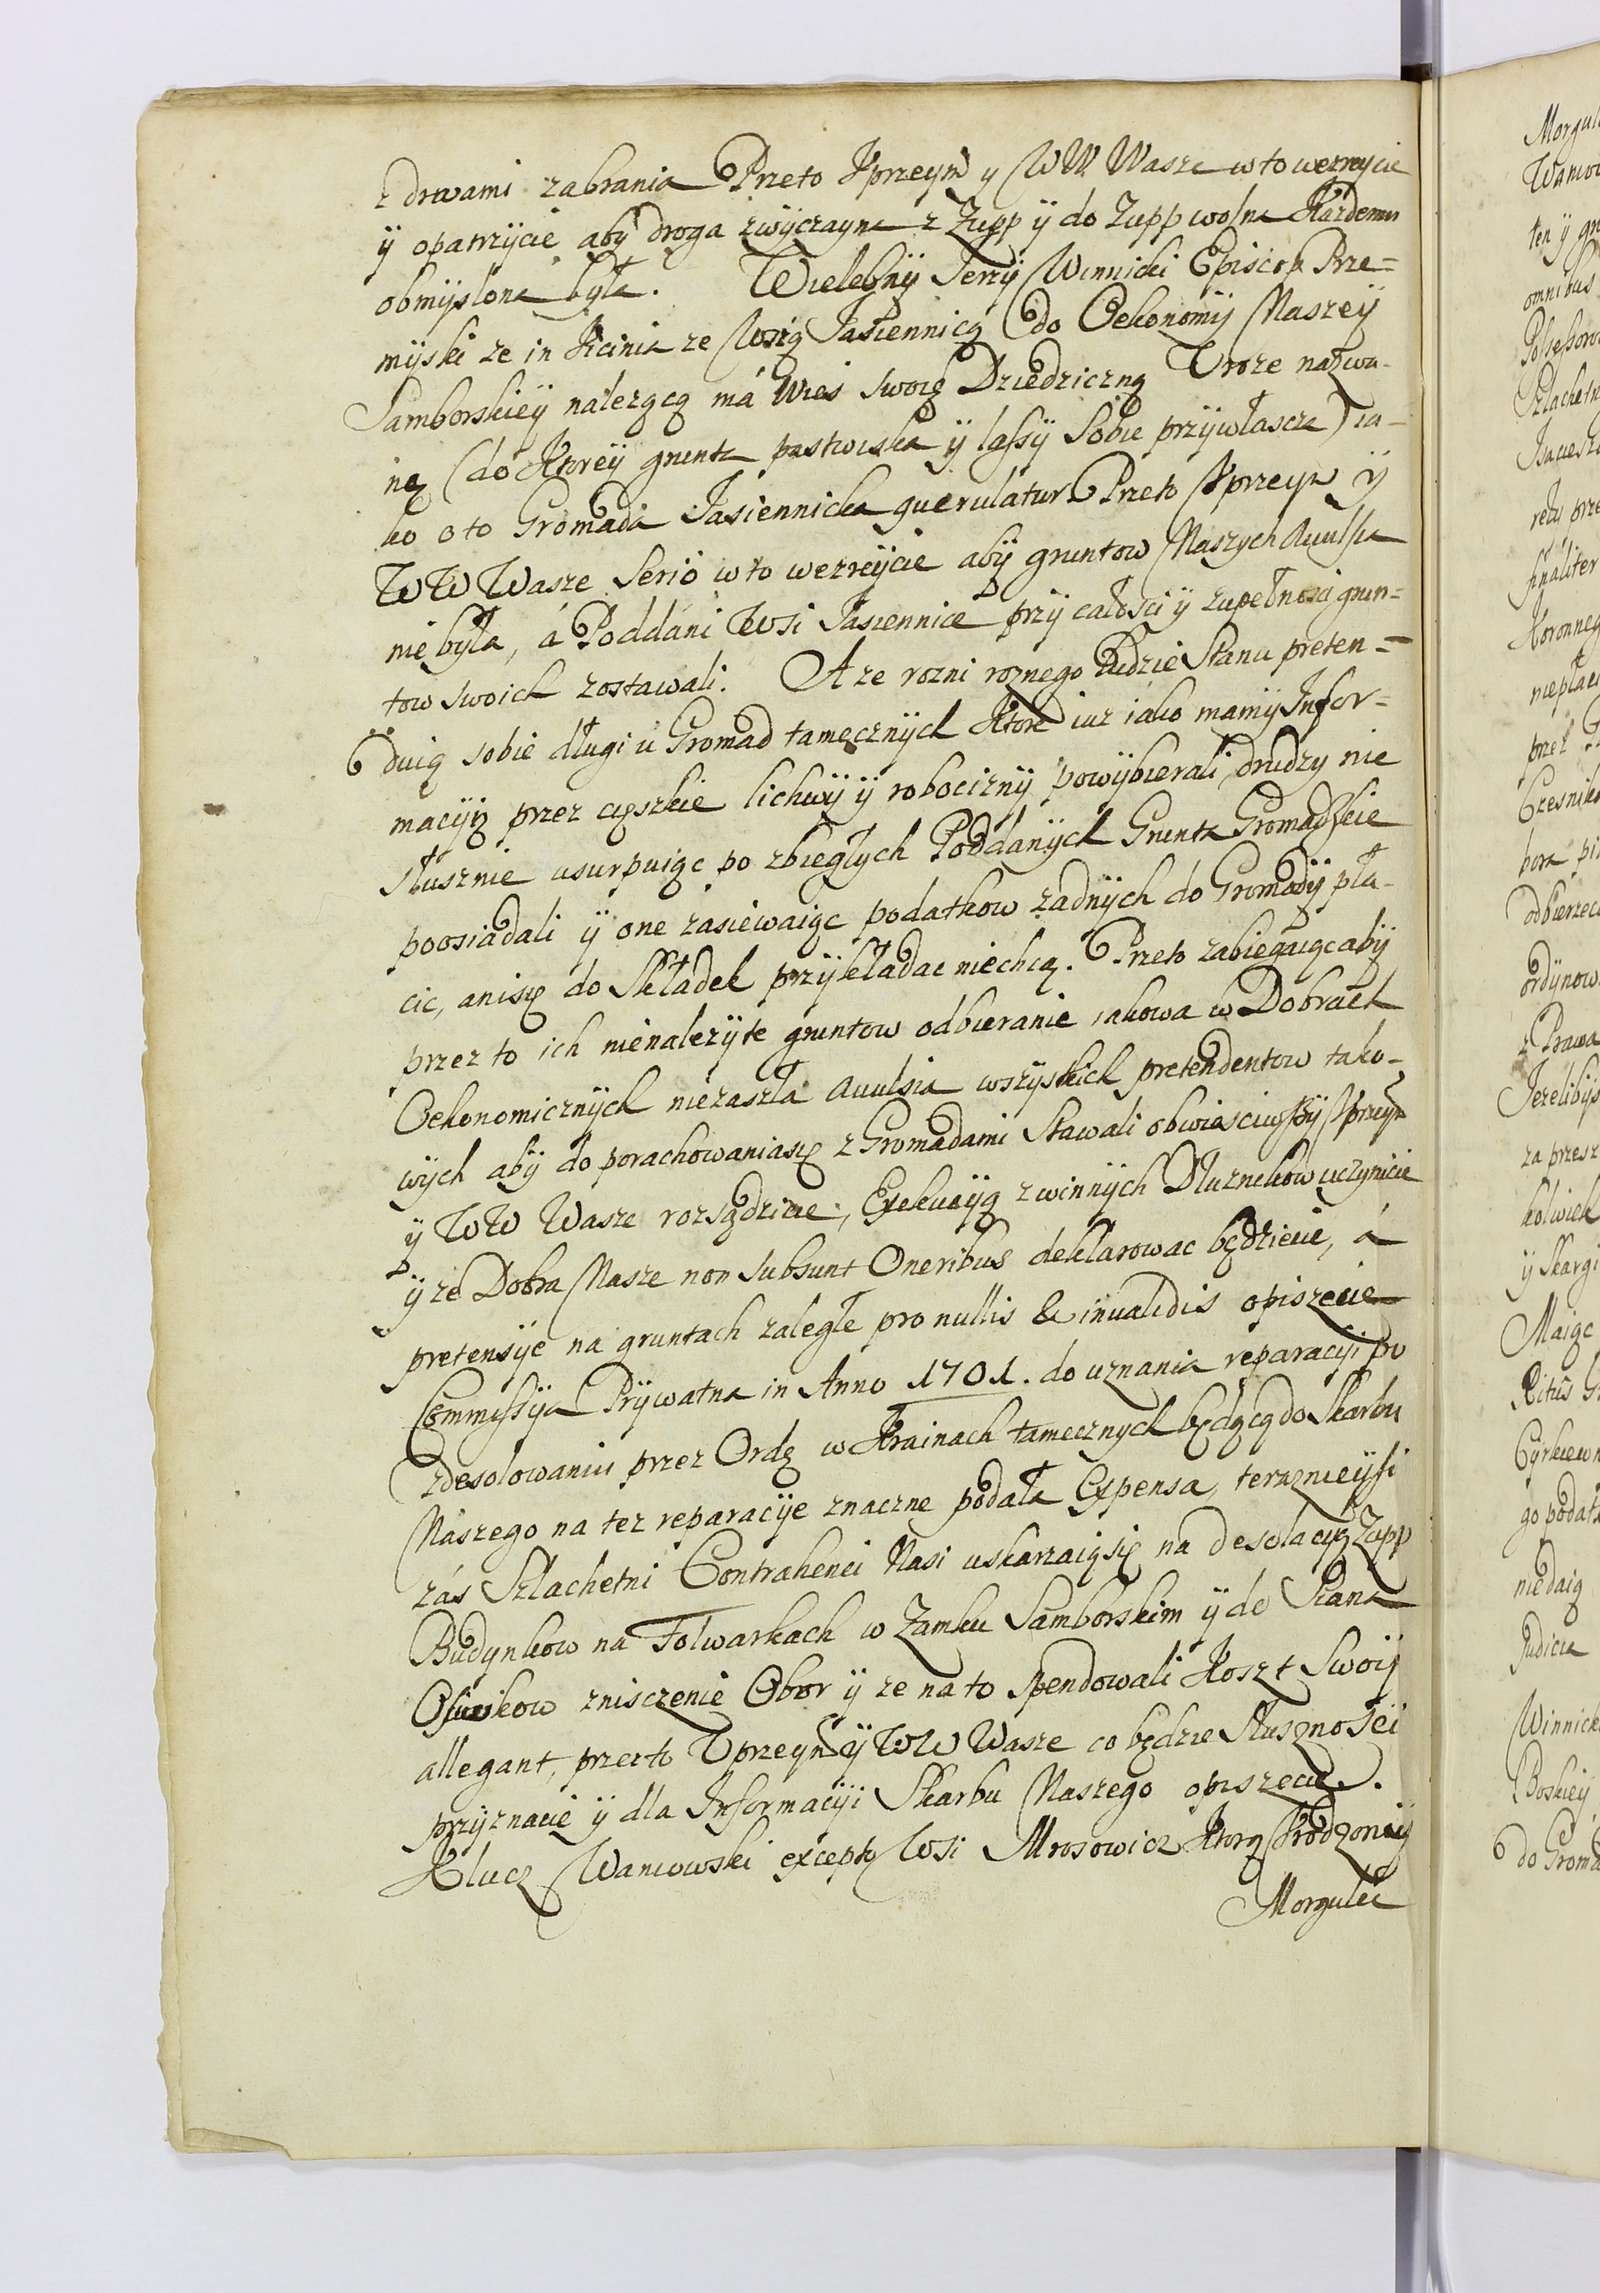 z drwami zabrania Przeto Uprzeyw y WW Wasze w to weyrzycie
ÿ opatrzÿcie abÿ droga zwÿczayna z Zupp ÿ do Zupp wolna każdemu
obmÿslona była. Wielebnÿ Jerzÿ Winnicki Episcop Prze=
mÿski ze in Vicinia ze Wsią Jasiennicą do Oekonomÿ Naszeÿ
Samborskieÿ nalezącą má Wies swoię Dziedziczną Uroze nazwa-
ną (do Ktoreÿ grunta pastwiska ÿ lassÿ Sobie przÿwłascza) ia-
ko o to Gromada Jasiennicka querulatur Przeto Uprzeyw ÿ
WW Wasze Serio w to wezreÿcie abÿ gruntow Naszych Avulsia
nie była, á Poddani Wsi Jasiennice przÿ całosci ÿ zupełnosci grun=
tow swoich zostawali. A ze rozni roznego Ludzie Stanu preten=
duią sobie długi u Gromad tamecznÿch Ktore iuz iako mamÿ Infor=
macÿą przez cięszkie lichwÿ ÿ robociznÿ powÿbierali, drudzy nie
słusznie usurpuiąc po zbiegłych Poddanÿch Grunta Gromadskie
poosiadali ÿ one zasiewaiąc podatkow zadnÿch do Gromadÿ pła-
cic, anisię do Składek przÿkładac niechcą. Przeto zabiegaiąc abÿ
przez to ich nienalezÿte gruntow odbieranie iakowa w Dobrach
Oekonomicznÿch niezaszła avulsia wszÿstkich pretendentow tako-
wÿch abÿ do porachowaniasię z Gromadami Stawali obwiesciwszÿ Uprzeyw
ÿ WW Wasze rozsądzicie, Exekucÿą z winnÿch Dłuznikow uczynicie
ÿ ze Dobra Nasze non subsunt Oneribus deklarowac będziecie, á
pretensÿe na gruntach zaległe pro nullis & invalidis opiszecie
Commissÿa Prÿwatna in Anno 1701. do uznania reparacÿi po
zdesolowaniu przez Ordę w Krainach tamecznych będącą do Skarbu
Naszego na tez reparacÿe znaczne podała Expensa, teraznieÿsi
zás Szlachetni Contrahenci Nasi uskarzaiąsię na desolacÿą Zupp
Budynkow na Folwarkach w Zamku Samborskim ÿ de
zniszczenie Obor ÿ ze na to Spendowali Koszt Swoÿ
allegant, przeto Uprzeyw ÿ WW Wasze co będzie Słusznosci
przÿznacie ÿ dla Informacÿi Skarbu Naszego opiszecie.
Klucz Waniowski excepto Wsi Mrosowicz Ktorą Urodzoneÿ
Morgulec